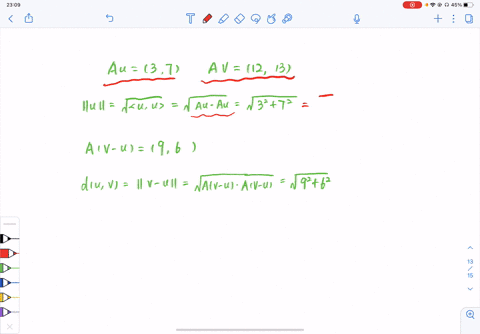 23:09
45%
Au = (3,7) AV = (12, 13)
||u|| = √<u, u> = √Au - Au = √3²+7² =
A(V-u) = (9, 6)
d(u, v) = ||V-u|| = √A(V-u) · A(V-u) = √9²+6²
13
/
15